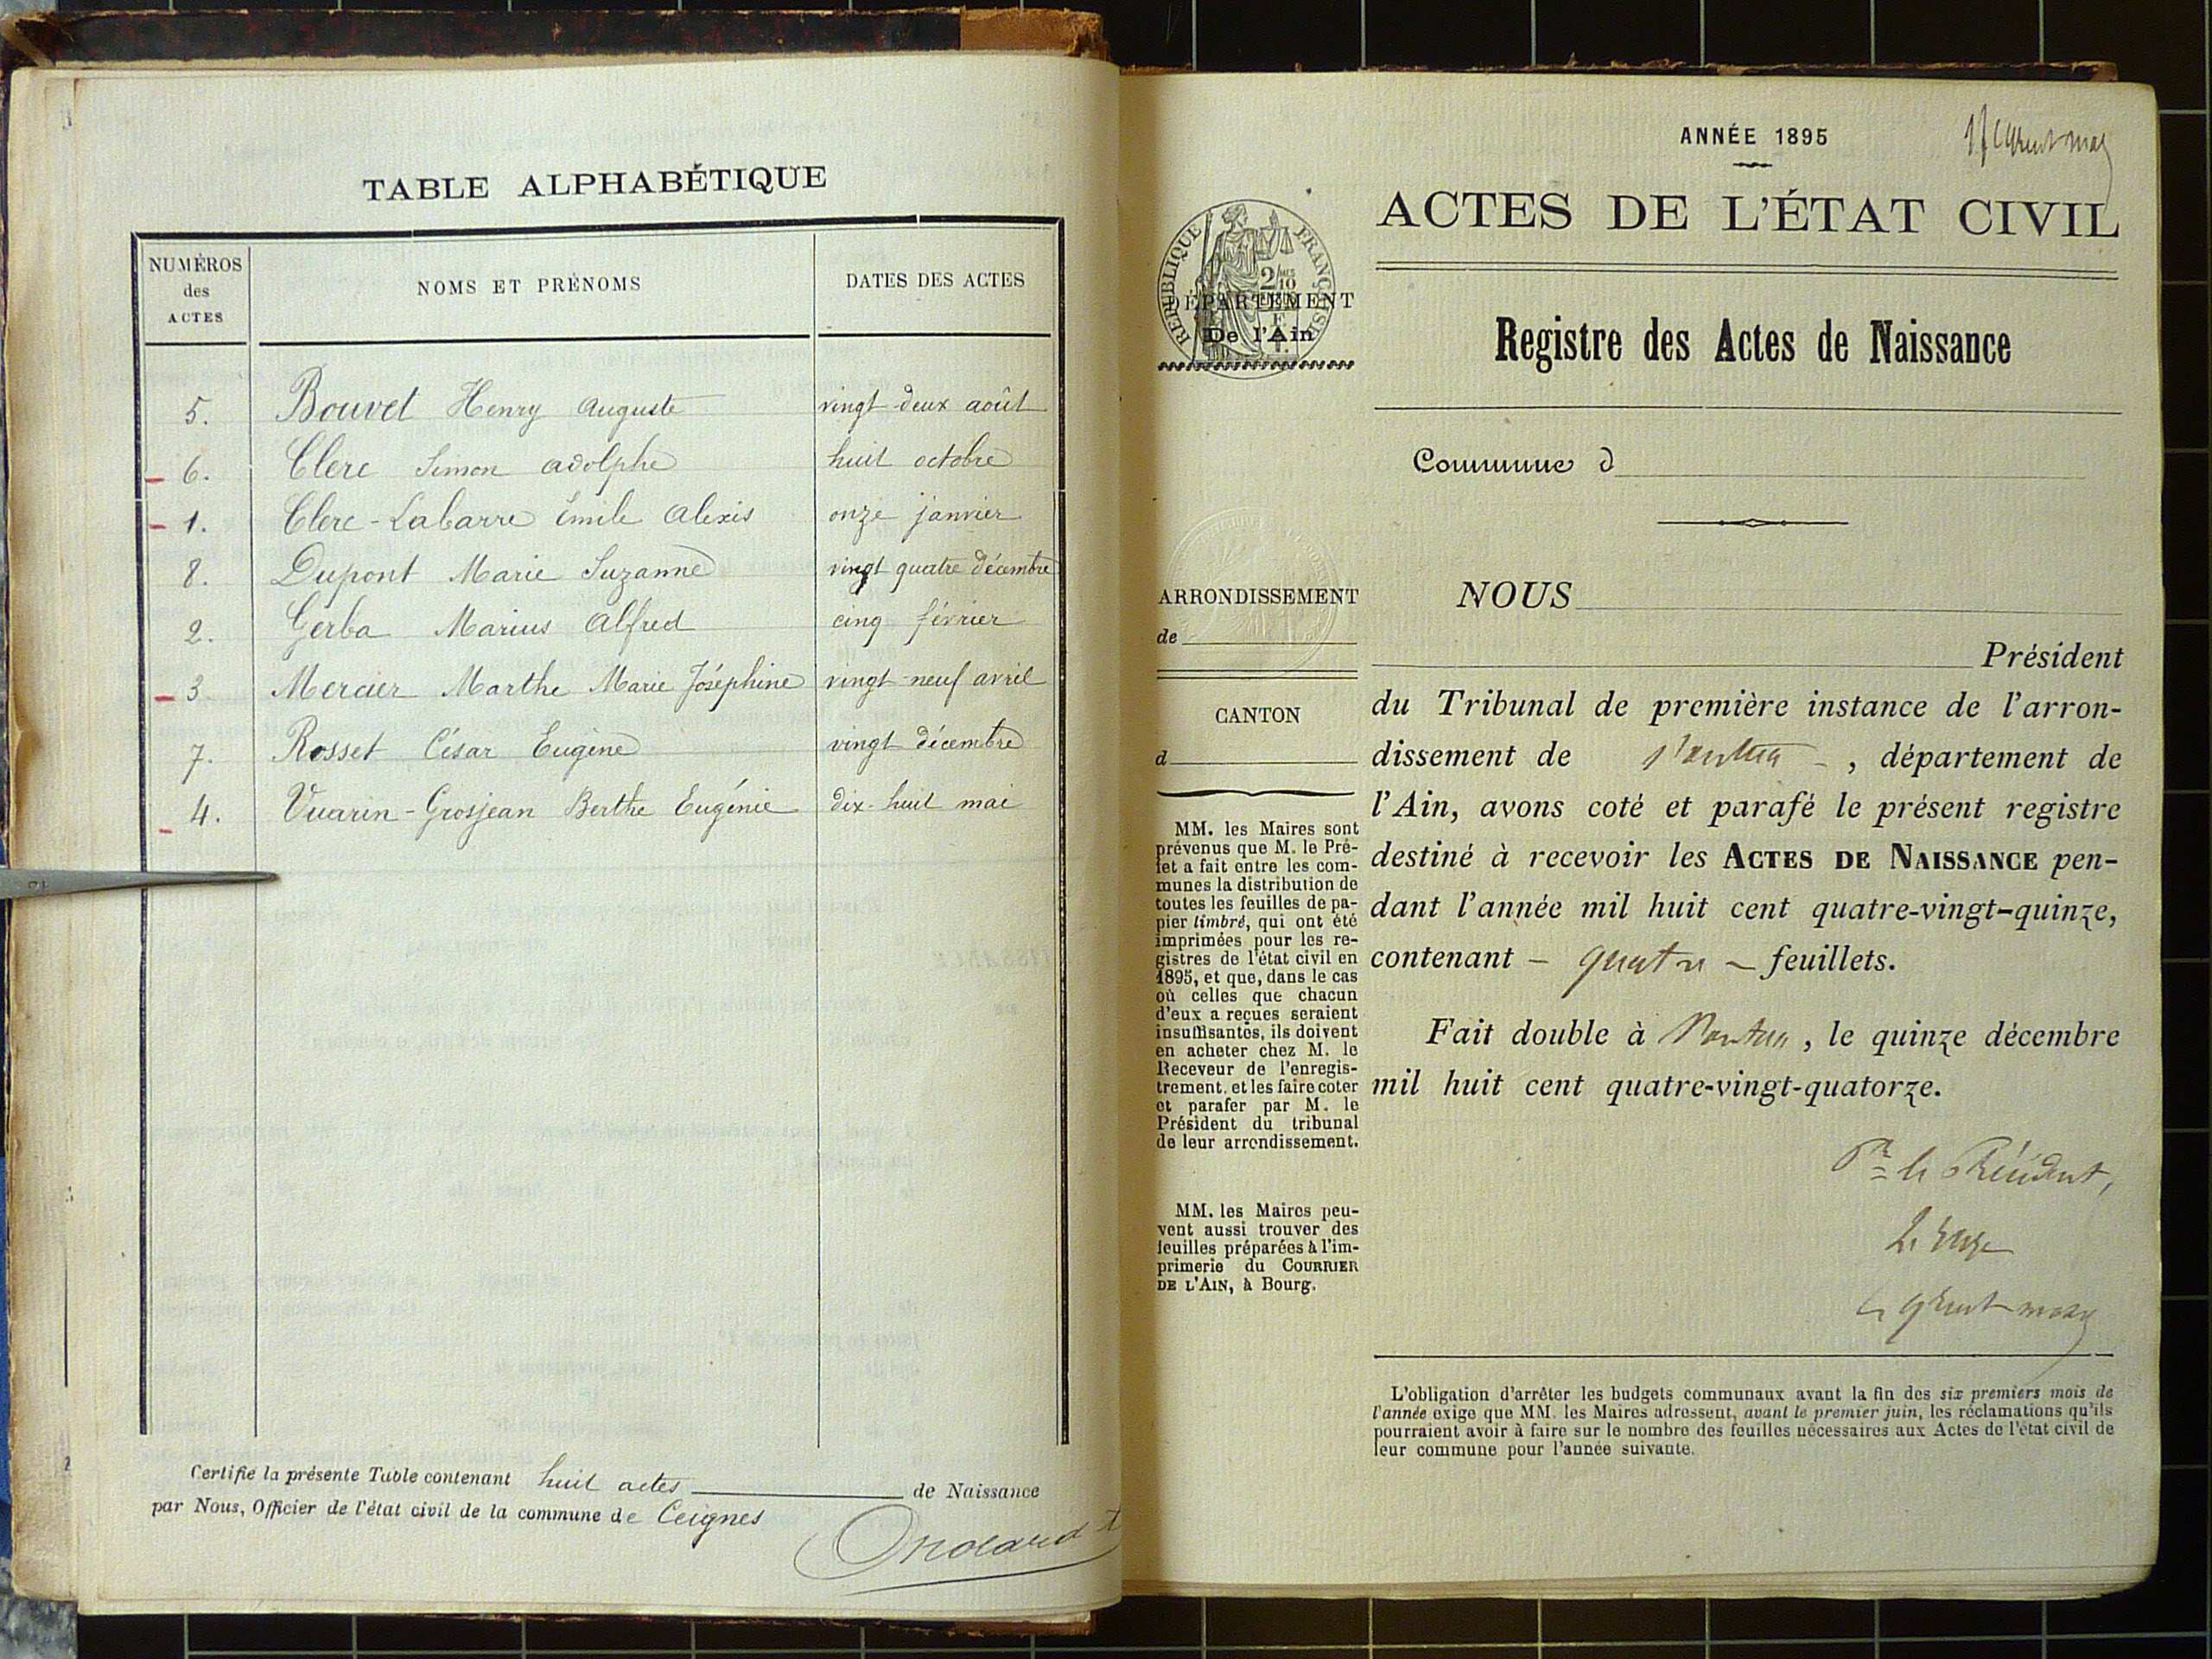 TABLE ALPHABÉTIQUE
NUMÉROS
des
ACTES
NOMS ET PRÉNOMS
DATES DES ACTES
5. Bouvet Henry Auguste vingt-deux août
6. Clerc Simon Adolphe huit octobre
1. Clerc-Labarre Émile Alexis onze janvier
8. Dupont Marie Suzanne vingt quatre décembre
2. Gerba Marius Alfred cinq février
3. Mercier Marthe Marie Joséphine vingt-neuf avril
7. Rosset César Eugène vingt décembre
4. Vuarin-Grosjean Berthe Eugénie dix-huit mai
Certifié la présente Table contenant huit actes de Naissance
par Nous, Officier de l'état civil de la commune de Ceignes
ANNÉE 1895
ACTES DE L'ÉTAT CIVIL
RÉPUBLIQUE FRANÇAISE
2/10
DÉPARTEMENT
De l'Ain
Registre des Actes de Naissance
Commune d
ARRONDISSEMENT
de
CANTON
d
MM. les Maires sont
prévenus que M. le Pré-
fet a fait entre les com-
munes la distribution de
toutes les feuilles de pa-
pier timbré, qui ont été
imprimées pour les re-
gistres de l'état civil en
1895, et que, dans le cas
où celles que chacun
d'eux a reçues seraient
insuffisantes, ils doivent
en acheter chez M. le
Receveur de l'enregis-
trement, et les faire coter
et parafer par M. le
Président du tribunal
de leur arrondissement.
MM. les Maires peu-
vent aussi trouver des
feuilles préparées à l'im-
primerie du COURRIER
DE L'AIN, à Bourg.
NOUS
Président
du Tribunal de première instance de l'arron-
dissement de Nantua, département de
l'Ain, avons coté et parafé le présent registre
destiné à recevoir les ACTES DE NAISSANCE pen-
dant l'année mil huit cent quatre-vingt-quinze,
contenant - quatre - feuillets.
Fait double à Nantua, le quinze décembre
mil huit cent quatre-vingt-quatorze.
Pr le Président,
Le Juge
L'obligation d'arrêter les budgets communaux avant la fin des six premiers mois de
l'année exige que MM. les Maires adressent, avant le premier juin, les réclamations qu'ils
pourraient avoir à faire sur le nombre des feuilles nécessaires aux Actes de l'état civil de
leur commune pour l'année suivante.